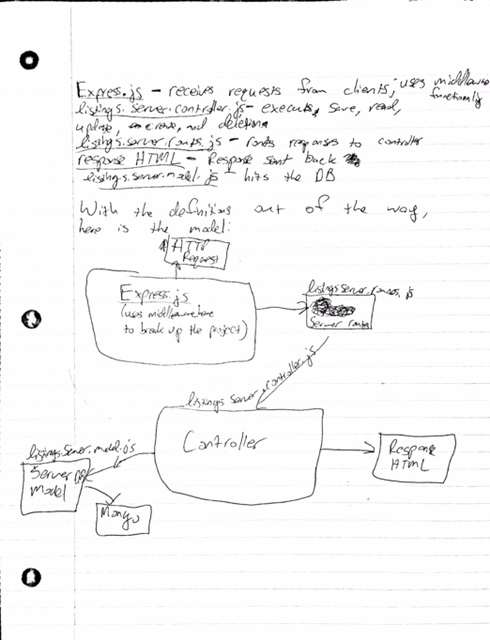 Express.js - receives requests from clients; uses middleware
functionality
listings.server.controller.js - execute, save, read,
update, create, and deletion
listings.server.routes.js - routes responses to controller
response HTML - Response sent back
listings.server.model.js - hits the DB
With the definitions out of the way,
here is the model:
HTTP
Request
Express.js
(uses middleware
to break up the project)
listings.server.routes.js
Server routes
listings.server.controller.js
Controller
Response
HTML
listings.server.model.js
Server DB
Model
Mongo